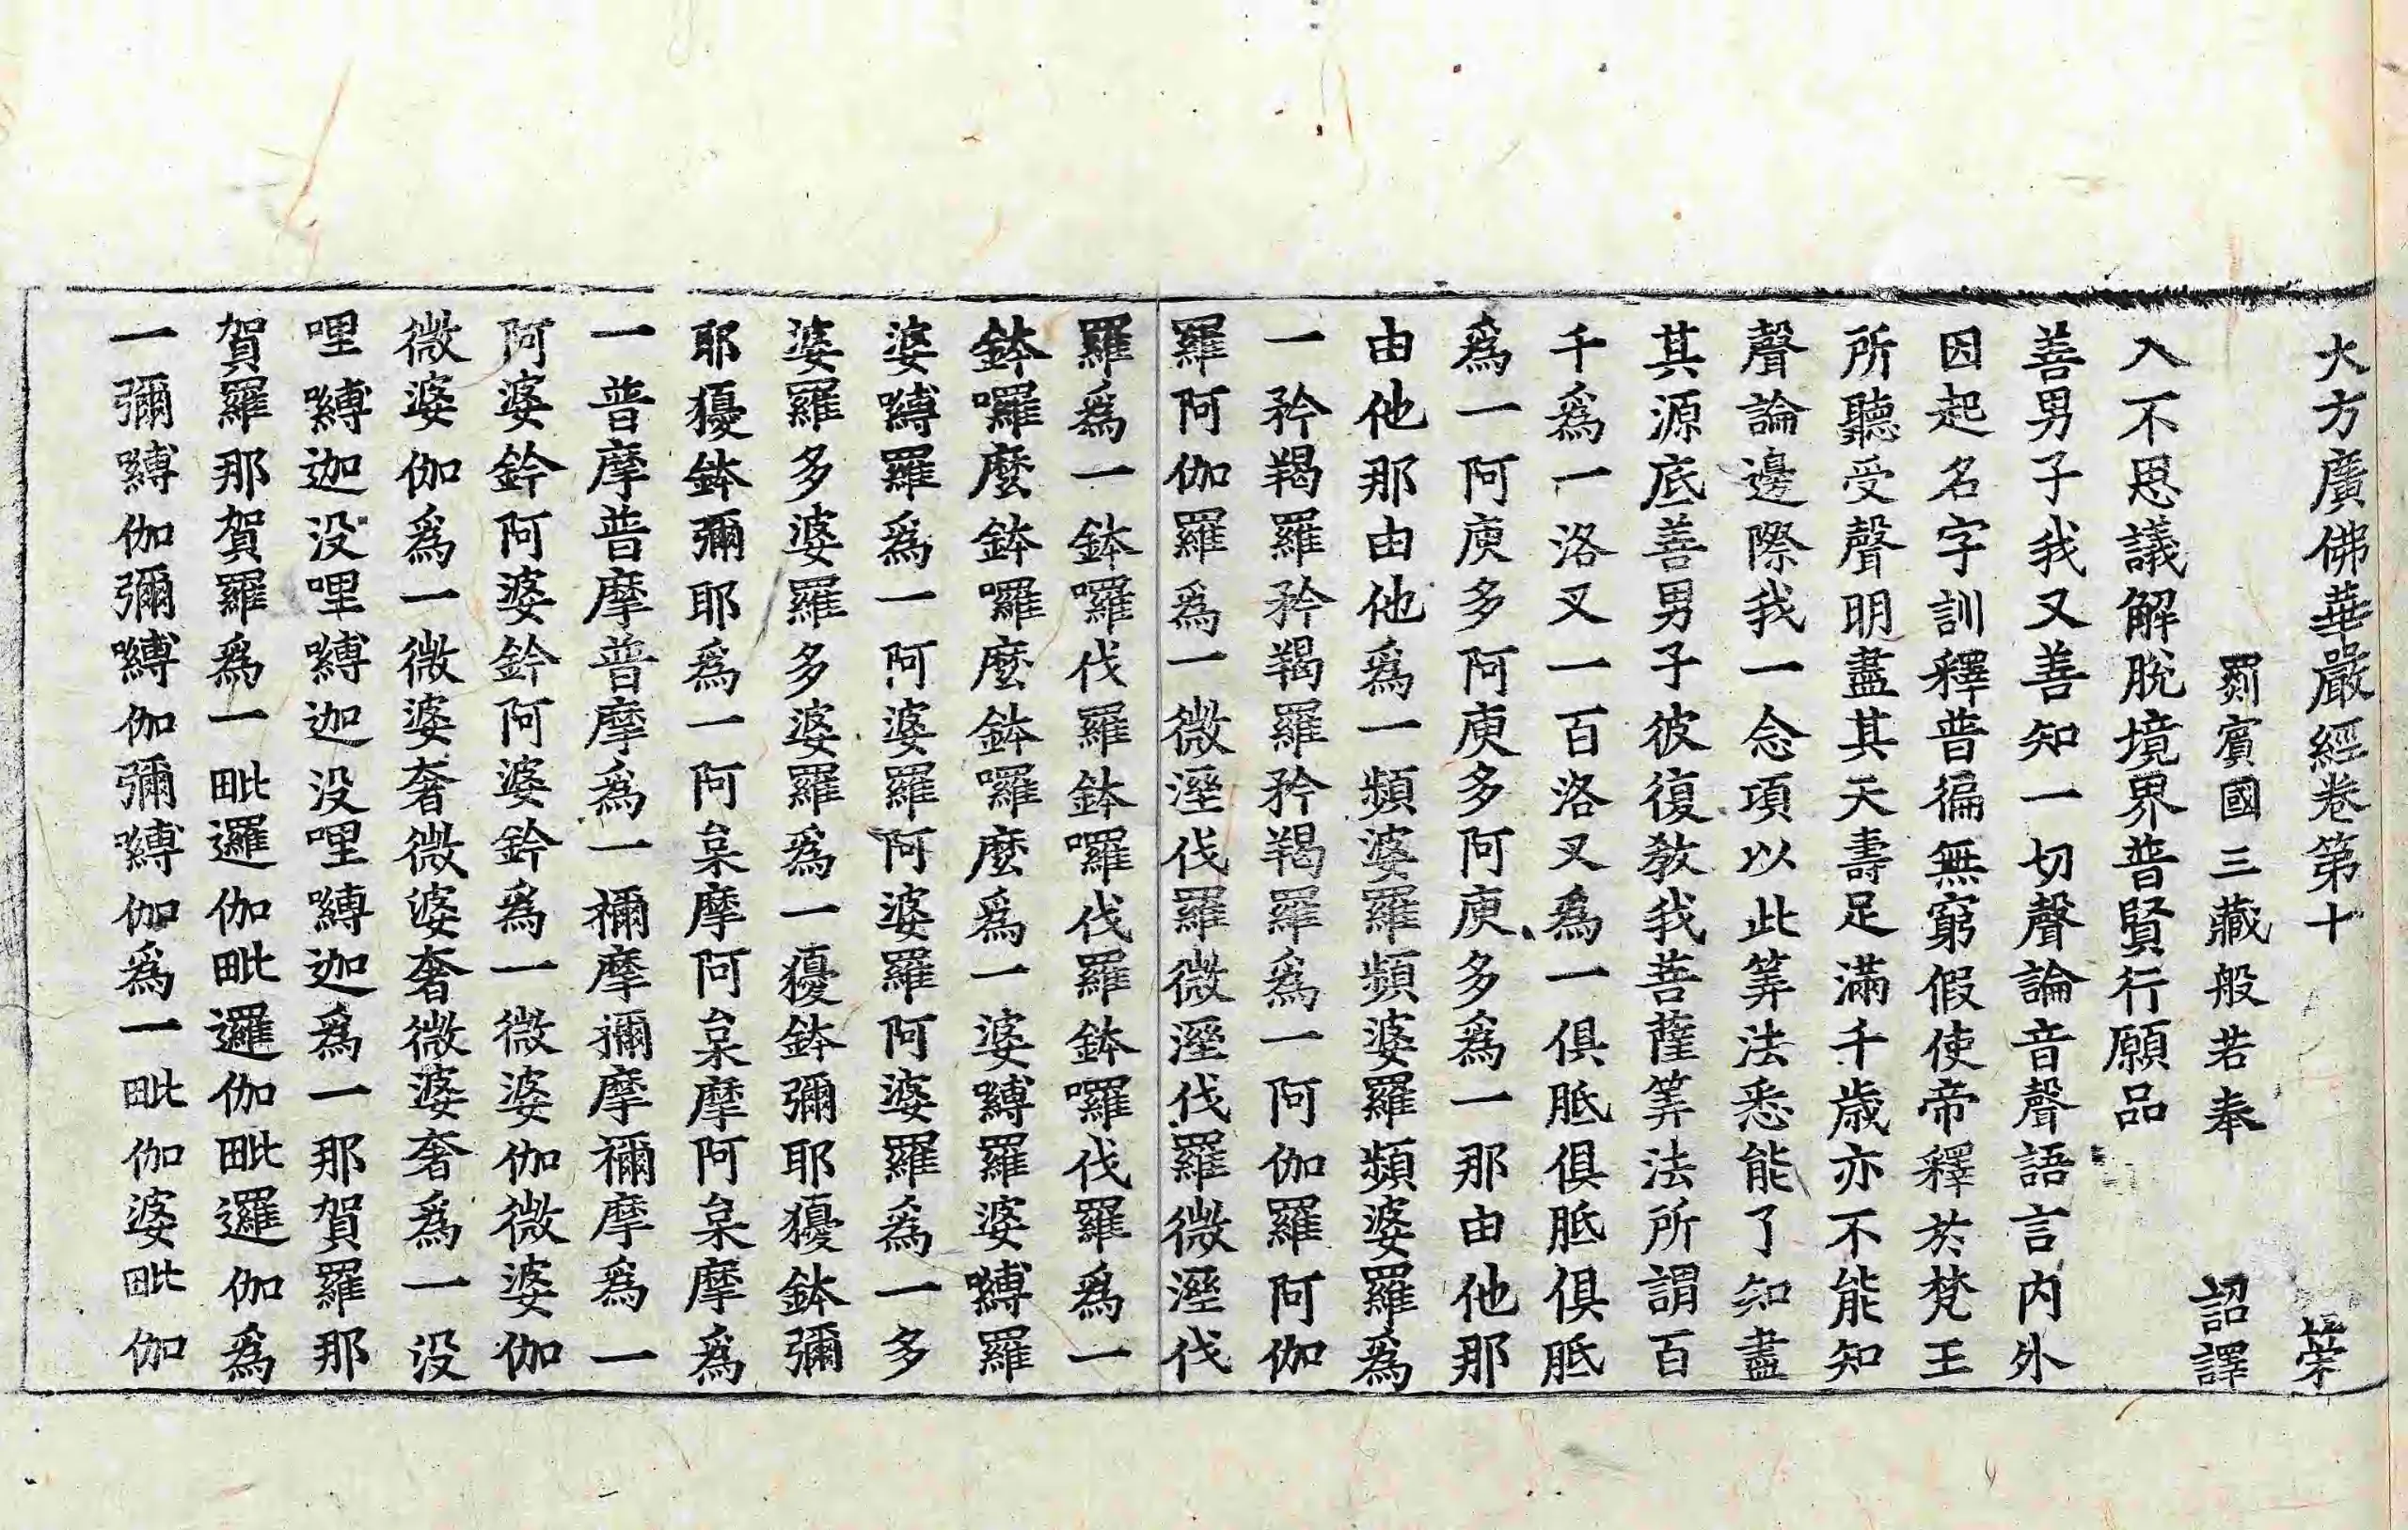 大方廣佛華嚴經卷第十
罽賓國三藏般若奉 詔譯
入不思議解脫境界普賢行願品
善男子我又善知一切聲論音聲語言内外
因起名字訓釋普徧無窮假使帝釋於梵王
所聽受聲明盡其天壽足滿千歲亦不能知
聲論邊際我一念項以此筭法悉能了知盡
其源底善男子彼復教我菩薩筭法所謂百
千爲一洛叉一百洛叉爲一俱胝俱胝俱胝
爲一阿庾多阿庾多阿庾多爲一那由他那
由他那由他爲一頻婆羅頻婆羅頻婆羅爲
一矜羯羅矜羯羅矜羯羅爲一阿伽羅阿伽
羅阿伽羅爲一微溼伐羅微溼伐羅微溼伐
羅爲一鉢囉伐羅鉢囉伐羅鉢囉伐羅爲一
鉢囉麼鉢囉麼鉢囉麼爲一婆嚩羅婆嚩羅
婆嚩羅爲一阿婆羅阿婆羅阿婆羅爲一多
婆羅多婆羅多婆羅爲一㺠鉢彌耶㺠鉢彌
耶㺠鉢彌耶爲一阿枲摩阿枲摩阿枲摩爲
一普摩普摩普摩爲一禰摩禰摩禰摩爲一
阿婆鈐阿婆鈐阿婆鈐爲一微婆伽微婆伽
微婆伽爲一微婆奢微婆奢微婆奢爲一没
哩嚩迦没哩嚩迦没哩嚩迦爲一那賀羅那
賀羅那賀羅爲一毗邏伽毗邏伽毗邏伽爲
一彌嚩伽彌嚩伽彌嚩伽爲一毗伽婆毗伽